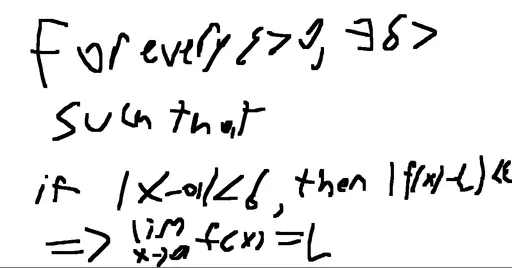 For every ε>0, ∃δ>
such that
if |x-a|<δ, then |f(x)-L|<ε
=> lim x→a f(x)=L